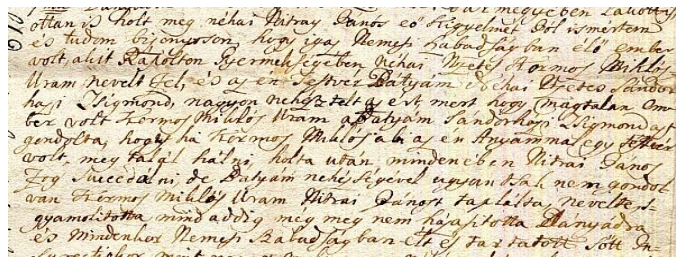 ottan is holt meg néhai Nitray János eő Kigyelmét Jól ismértem
és tudom bizonyoson, hogy igaz Nemesi szabadságban élő ember
volt, akit Rápolton Gyermekségében néhai Nztes Kormos Miklós
Uram nevelt fel, és az én Testvér Bátyám Néhai Nztes Sándor
hazi Zsigmond, nagyon neheztelt az ért, mert hogy magtalan Em
ber volt Kormos Miklós Uram a Bátyám Sándorházi Zsigmond azt
gondolta, hogy ha Kormos Miklós aki az én Anyámnak egy Testvér
volt, meg talál hálni, holta után mindenében Nitrai János
fog succedálni, de Bátyám nehézségével ugyan tsak nem gondol
ván Kormos Miklós Uram Nitrai Jánost táplálta, nevelte s
gyamolitotta mind addig míg meg nem házasitotta Bányádra
és Mindenkor Nemesi Szabadságban élt és tartatott sőtt In